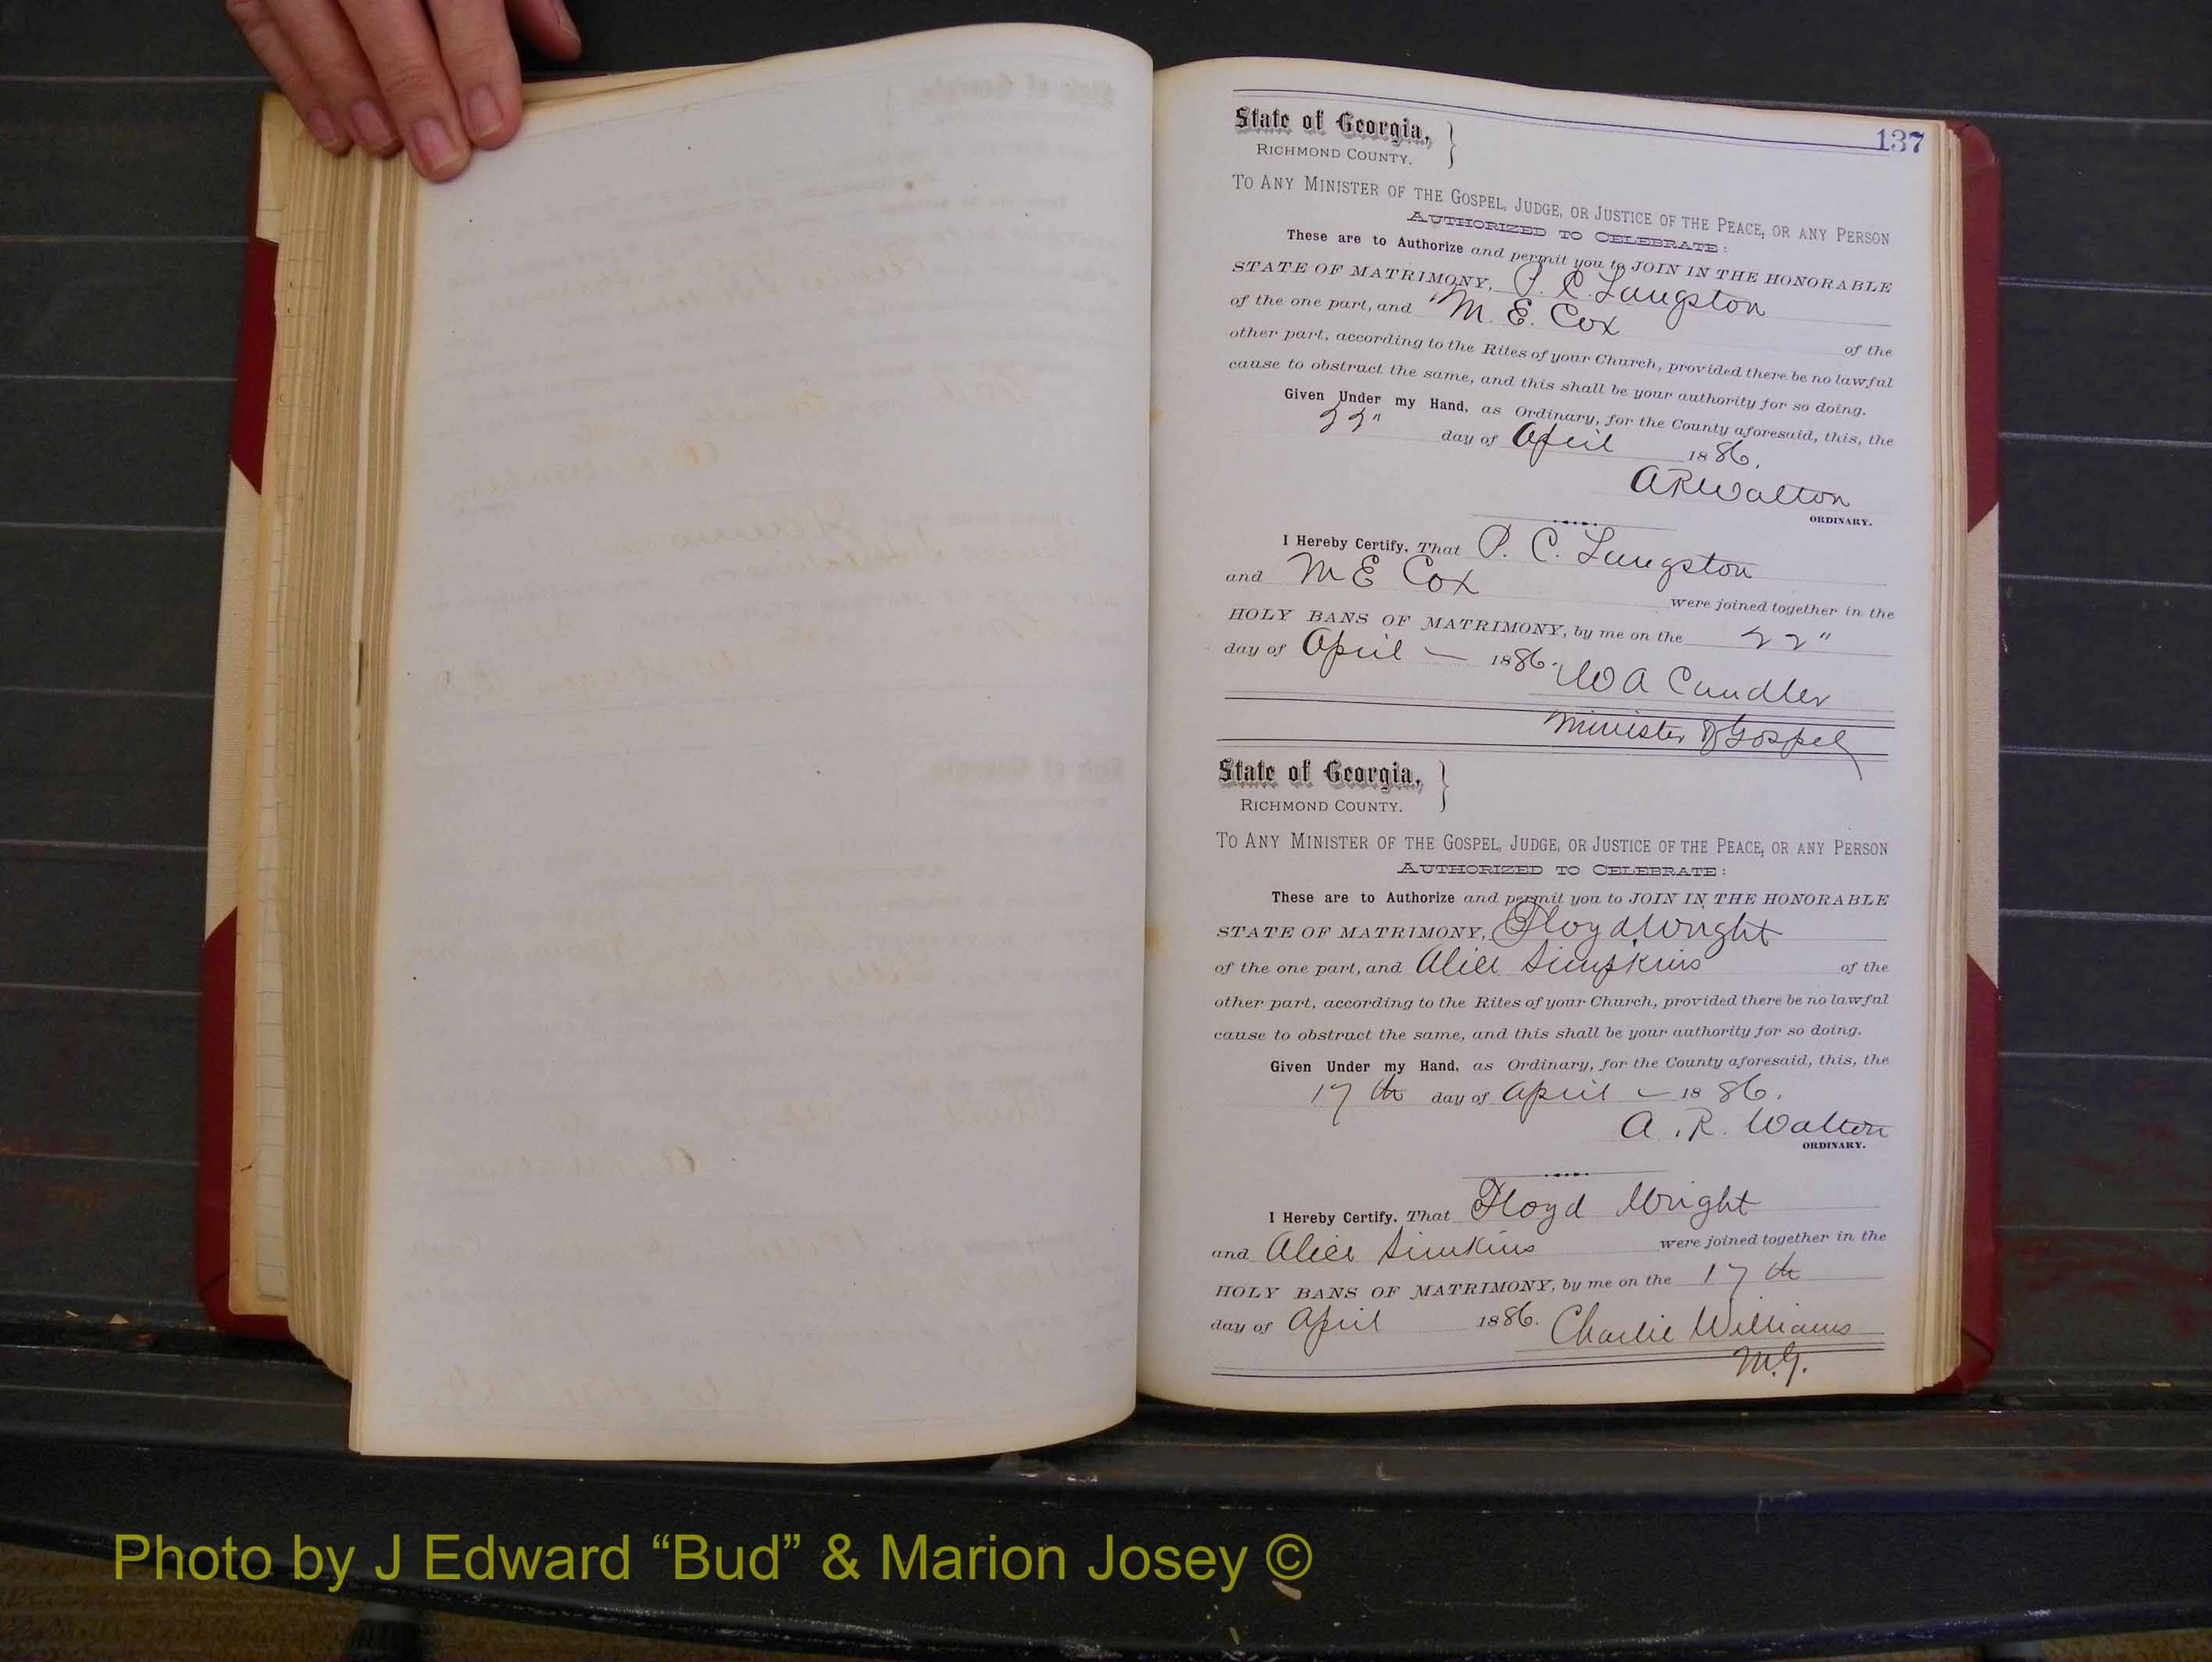 137
State of Georgia,
RICHMOND COUNTY.
TO ANY MINISTER OF THE GOSPEL, JUDGE, OR JUSTICE OF THE PEACE, OR ANY PERSON
AUTHORIZED TO CELEBRATE:
These are to Authorize and permit you to JOIN IN THE HONORABLE
STATE OF MATRIMONY, P. C. Langston
of the one part, and M. E. Cox of the
other part, according to the Rites of your Church, provided there be no lawful
cause to obstruct the same, and this shall be your authority for so doing.
Given Under my Hand, as Ordinary, for the County aforesaid, this, the
22" day of April 1886.
A R Walton
ORDINARY.
I Hereby Certify, That P. C. Langston
and M E Cox were joined together in the
HOLY BANS OF MATRIMONY, by me on the 22"
day of April — 1886. W A Candler
Minister of Gospel
State of Georgia,
RICHMOND COUNTY.
TO ANY MINISTER OF THE GOSPEL, JUDGE, OR JUSTICE OF THE PEACE, OR ANY PERSON
AUTHORIZED TO CELEBRATE:
These are to Authorize and permit you to JOIN IN THE HONORABLE
STATE OF MATRIMONY, Floyd Wright
of the one part, and Alice Simpkins of the
other part, according to the Rites of your Church, provided there be no lawful
cause to obstruct the same, and this shall be your authority for so doing.
Given Under my Hand, as Ordinary, for the County aforesaid, this, the
17th day of April — 1886.
A. R. Walton
ORDINARY.
I Hereby Certify, That Floyd Wright
and Alice Simkins were joined together in the
HOLY BANS OF MATRIMONY, by me on the 17th
day of April 1886. Charlie Williams
M.G.
Photo by J Edward “Bud” & Marion Josey ©